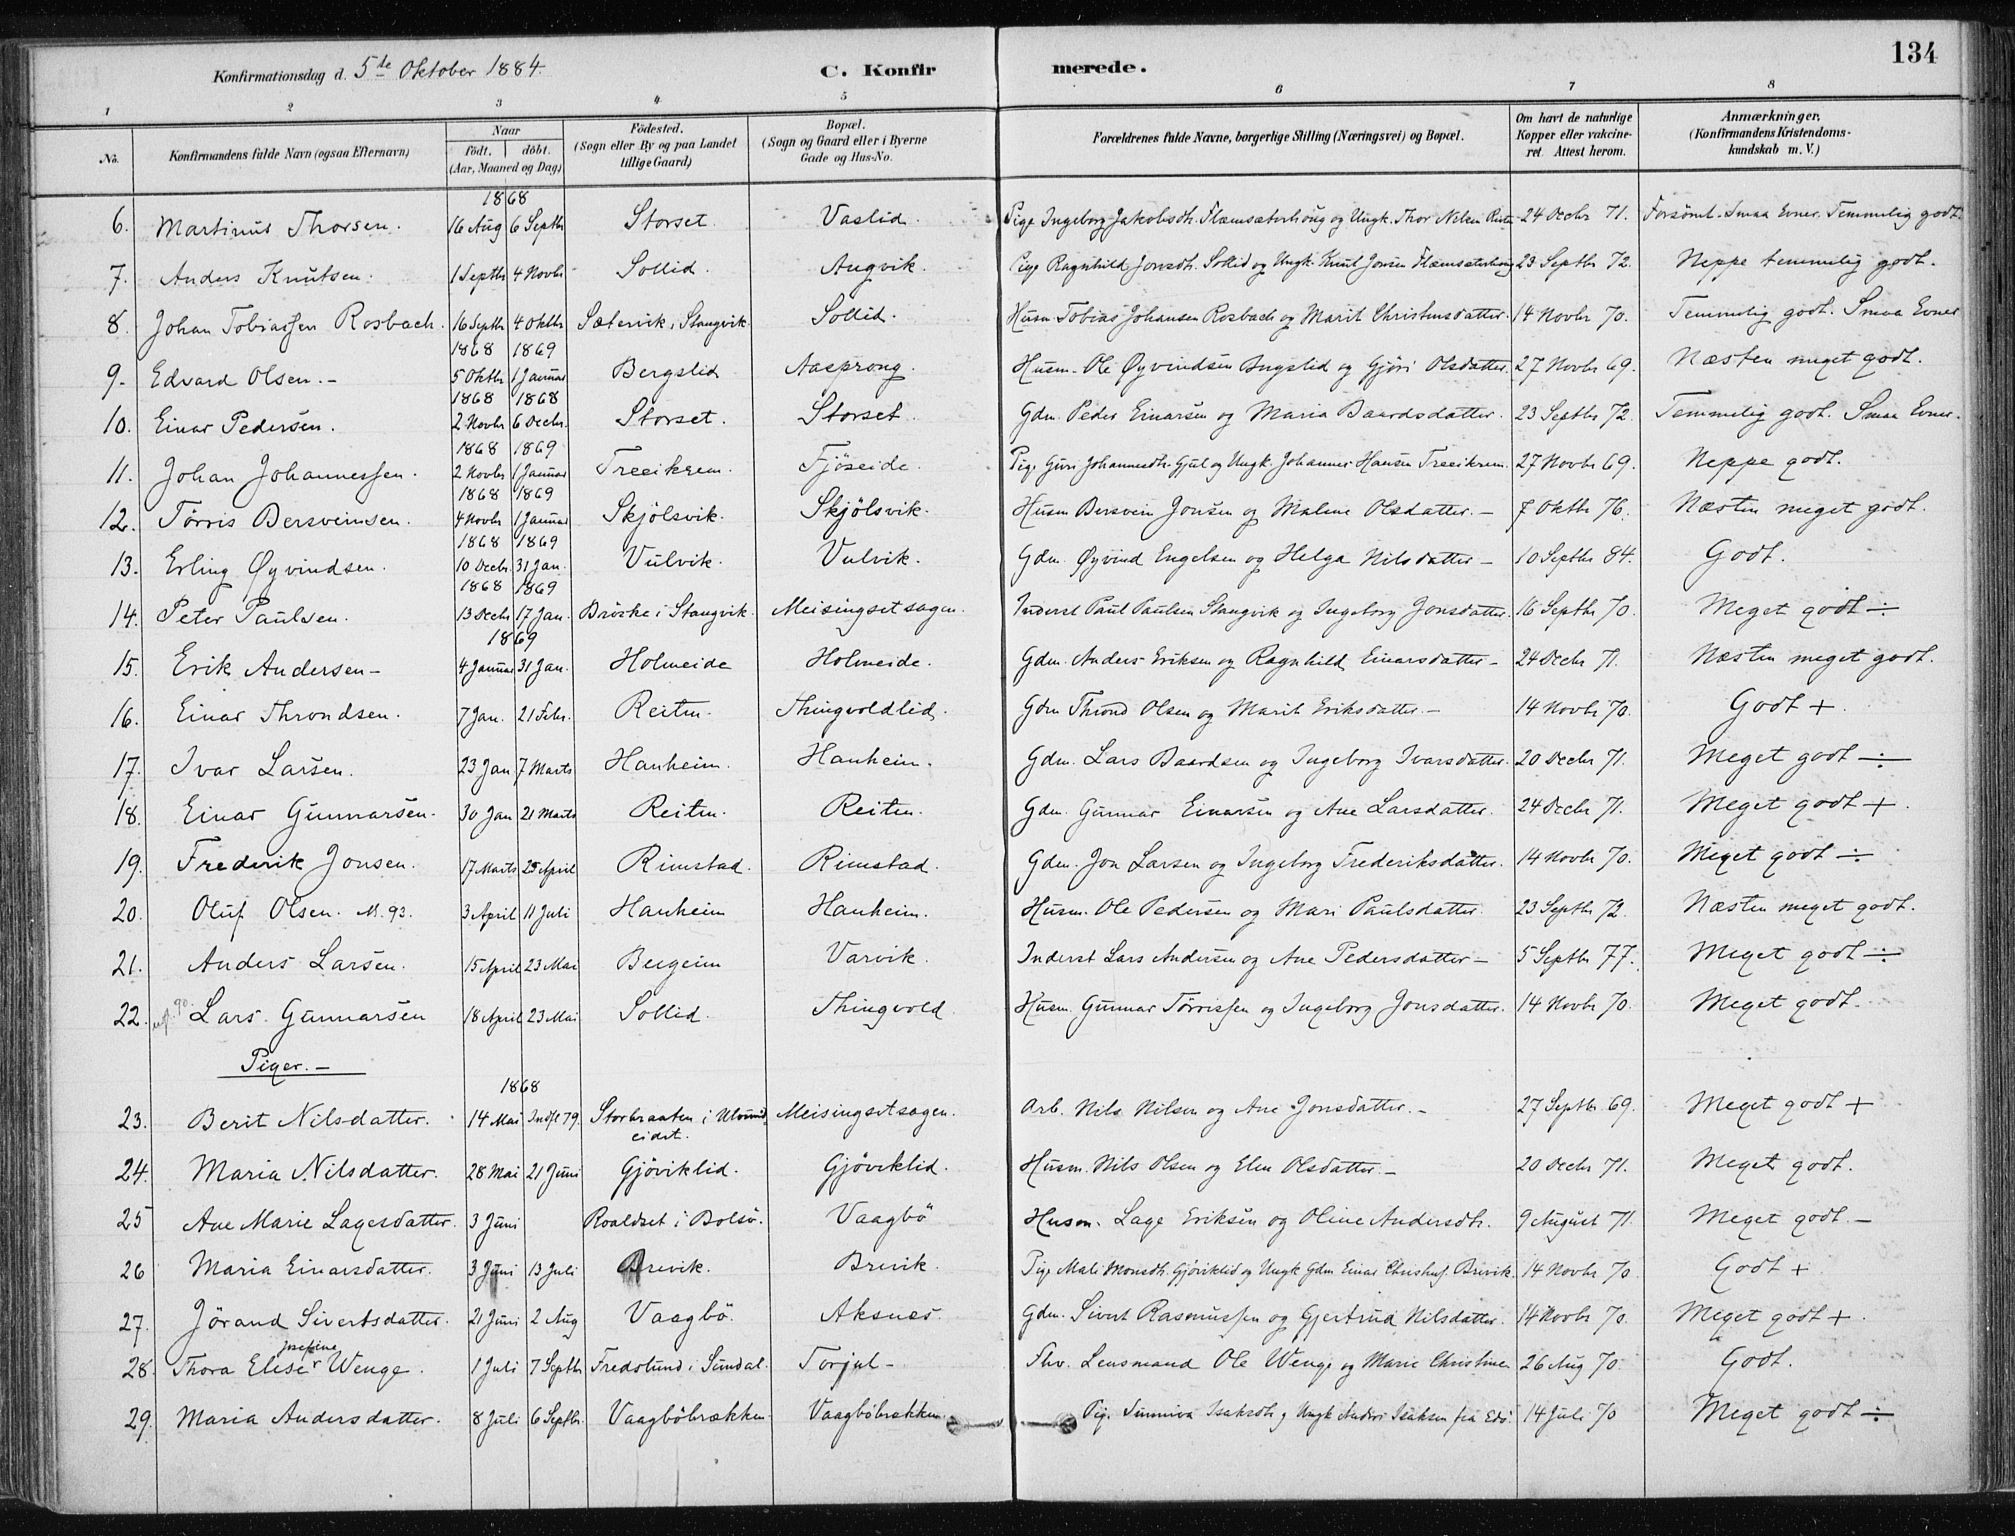 134
Konfirmationsdag d. 5te Oktober 1884.
C. Konfirmerede.
1 2 3 4 5 6 7 8
No. Konfirmandens fulde Navn (ogsaa Efternavn) Naar födt. döbt. (Aar, Maaned og Dag) Födested. (Sogn eller By og paa Landet tillige Gaard) Bopæl. (Sogn og Gaard eller i Byerne Gade og Hus-No. Forældrenes fulde Navne, borgerlige Stilling (Næringsvei) og Bopæl. Om havt de naturlige Kopper eller vakcineret. Attest herom. Anmærkninger. (Konfirmandens Kristendomskundskab m. V.)
1868
6. Martinus Thorsen. 16 Aug 6 Septbr Storset. Vaslid. Pige Ingeborg Jakobsdtr. Flemsæterhoug og Ungk. Thor Nilsen 24 Decbr 71. Forsömt. Smaa Evner. Temmelig godt.
7. Anders Knutsen. 1 Septbr 4 Novbr Sollid. Angvik. Pige Ragnhild Jonsdtr. Sollid og Ungk. Knut Jonsen Flemsæterhoug 23 Septbr 72. Neppe temmelig godt.
8. Johan Tobiassen Rosbach. 16 Septbr 4 Oktbr Sætervik i Stangvik Sollid. Husm Tobias Johansen Rosbach og Marit Christensdatter. 14 Novbr 70. Temmelig godt. Smaa Evner
1868 1869
9. Edvard Olsen. - 5 Oktbr 1 Januar Bergslid Aasprong. Husm. Ole Øyvindsen Bergslid og Gjöri Olsdatter. 27 Novbr 69. Næsten meget godt.
1868 1868
10. Einar Pedersen. 2 Novbr 6 Decbr. Storset. Storset. Gdm. Peder Einarsen og Maria Baardsdatter. 23 Septbr 72. Temmelig godt. Smaa Evner.
1868 1869
11. Johan Johannessen. 2 Novbr 1 Januar Treeikrem. Fjöseide. Pige Guri Johannesdtr. Gjul og Ungk. Johannes Hansen Treeikrem. 27 Novbr 69. Neppe godt.
1868 1869
12. Törris Bersveinsen. 4 Novbr 1 Januar Skjölsvik. Skjölsvik. Husm Bersvein Jonsen og Malene Olsdatter. - 7 Oktbr 76. Næsten meget godt.
1868 1869
13. Erling Øyvindsen. 10 Decbr. 31 Jan. Vulvik. Vulvik. Gdm. Øyvind Engelsen og Helga Nilsdatter - 10 Septbr 84. Godt.
1868 1869
14. Peter Paulsen. 13 Decbr 17 Jan. Bröske i Stangvik. Meisingsetsagen. Inderst Paul Paulsen Stangvik og Ingeborg Jonsdatter. 16 Septbr 70. Meget godt ÷
1869
15. Erik Andersen - 4 Januar 31 Jan. Holmeide Holmeide. Gdm. Anders Eriksen og Ragnhild Einarsdatter - 24 Decbr 71. Næsten meget godt.
16. Einar Throndsen. 7 Jan. 21 Febr. Reiten. Thingvoldlid. Gdm Thrond Olsen og Marit Eriksdatter - 14 Novbr 70. Godt +.
17. Ivar Larsen. 23 Jan 7 Marts Hanheim. Hanheim. Gdm. Lars Baardsen og Ingeborg Ivarsdatter. 20 Decbr 71. Meget godt ÷
18. Einar Gunnarsen. 30 Jan 21 Marts Reiten. Reiten. Gdm. Gunnar Einarsen og Ane Larsdatter. 24 Decbr 71. Meget godt +.
19. Frederik Jonsen. 17 Marts 25 April Rimstad. Rimstad. Gdm. Jon Larsen og Ingeborg Frederiksdatter. 14 Novbr 70. Meget godt ÷
20. Oluf Olsen. M. 93. 3 April 11 Juli Hanheim Hanheim. Husm. Ole Pedersen og Mari Paulsdatter 23 Septbr 72. Næsten meget godt.
21. Anders Larsen. 15 April 23 Mai Bergeim Varvik. Inderst Lars Andersen og Ane Pedersdatter - 5 Septbr 77. Meget godt ÷
22. Lars Gunnarsen 18 April 23 Mai Sollid. Thingvold. Husm. Gunnar Törrissen og Ingeborg Jonsdatter. 14 Novbr 70. Meget godt.
Piger. -
1868
23. Berit Nilsdatter. 14 Mai 79. Storbraaten i Ulvundeidet. Meisingsetsagen. Arb. Nils Nilsen og Ane Jonsdatter. - 27 Septbr 69. Meget godt +
24. Maria Nilsdatter. 28 Mai 21 Juni Gjöviklid. Gjöviklid. Husm. Nils Olsen og Elen Olsdatter. - 20 Decbr 71. Meget godt.
25 Ane Marie Lagesdatter. 3 Juni Roaldset i Bolsö. Vaagbö Husm. Lage Eriksen og Oline Andersdtr. 9 August 71. Meget godt. -
26 Maria Einarsdatter. 3 Juni 13 Juli Brevik. Brevik. Pige Mali Monsdtr. Gjöviklid og Ungk Gdm Einar Christens. Brevik. 14 Novbr 70. Godt +
27. Jörand Sivertsdatter. 21 Juni 2 Aug Vaagbö. Aksnes. Gdm. Sivert Rasmussen og Gjertrud Nilsdatter. 14 Novbr 70. Meget godt +.
28. Thora Elise Josefine Wenge. 1 Juli 7 Septbr Fredslund i Sundal. Torjul - Fhv. Lensmand Ole Wenge og Marie Christine 26 Aug 70. Godt.
29. Maria Andersdatter. 8 Juli 6 Septbr. Vaagböbrækken Vaagböbrækken Pig. Sunniva Isaksdtr og Ungk Anders Isaksen fra Edö. 14 Juli 70 Meget godt ÷